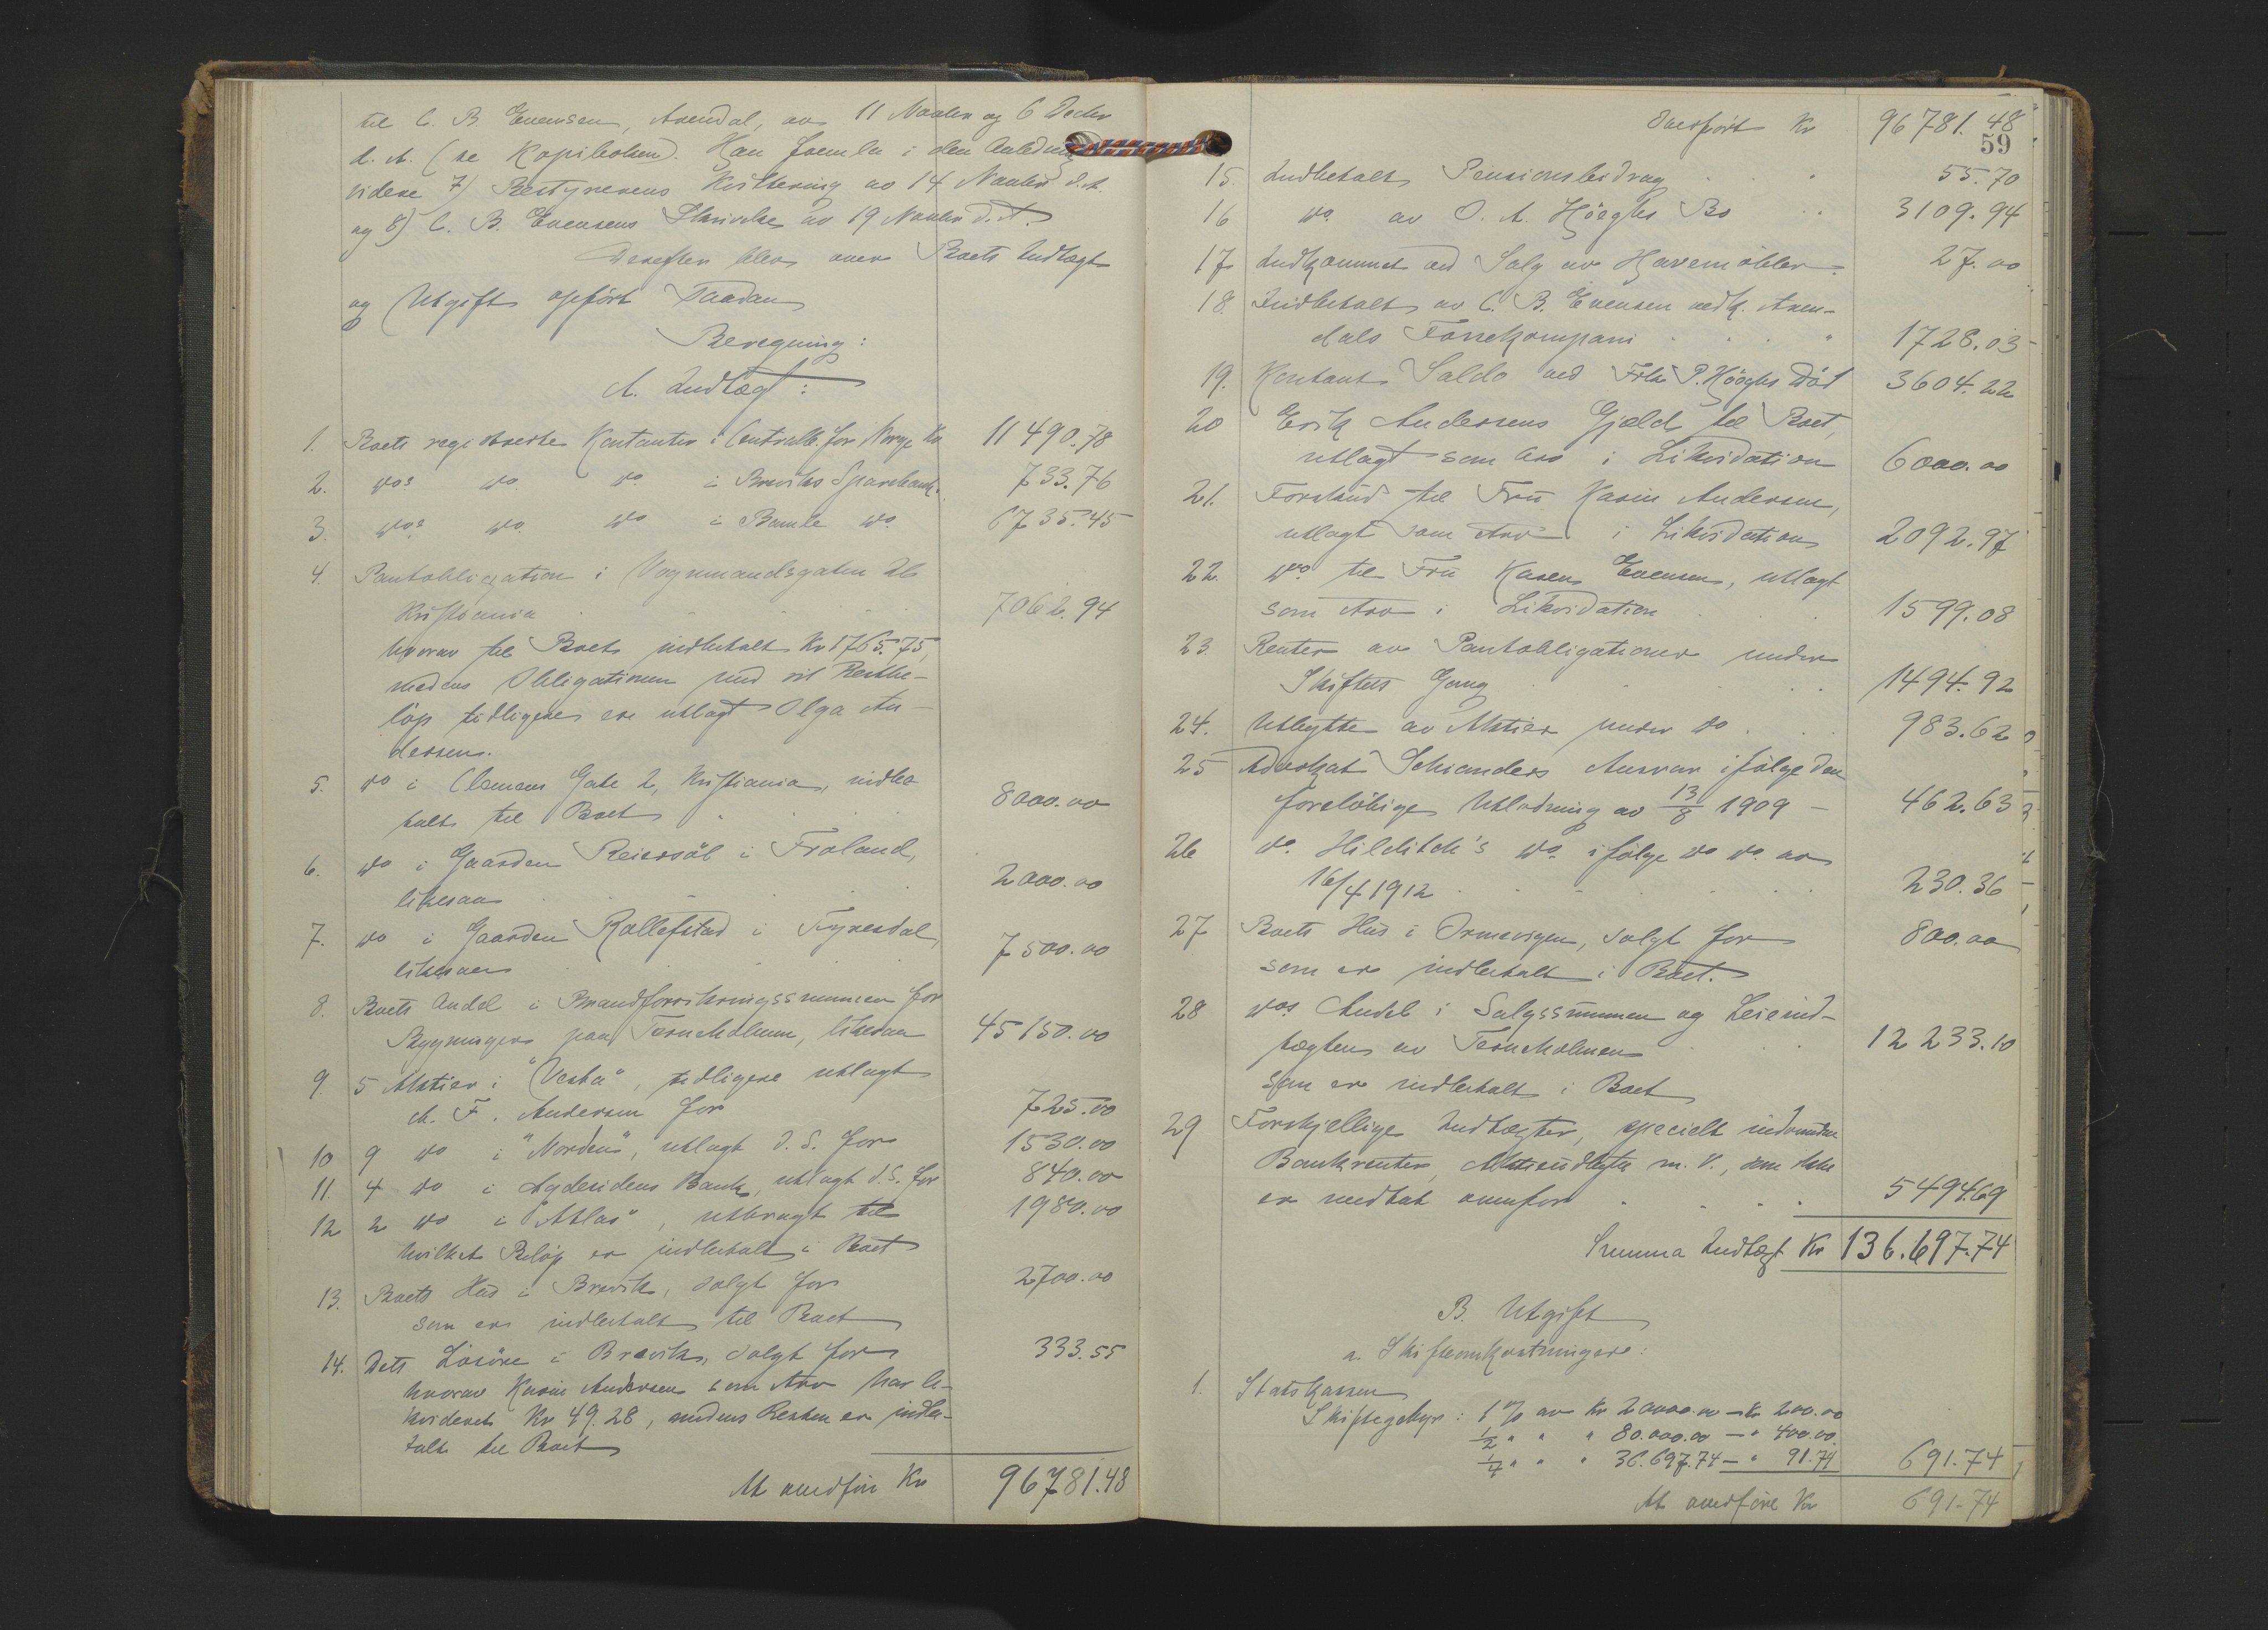 til C. B. Evensen, Arendal, av 11 Novbr og 6 Decbr
d. A. (se Kopiboken). Han fremla i den Anledning
videre 7) Bestyrerens Kvittering av 14 Novbr d. A.
og 8) C. B. Evensens Skrivelse av 19 Novbr d. A.
Derefter blev over Boets Indtægt
og Utgift opført saadan
Beregning:
A. Indtægt:
1. Boets registrerte Kontanter i Centralb. for Norge Kr 11490.78
2. dos do do i Breviks Sparebank. 733.76
3. dos do do i Bamle do 6735.45
4. Pantobligation i Vognmandsgaten 26
Kristiania 7062.94
hvorav til Boet indbetalt Kr 1765.75,
medens Obligationen med sit Restbe-
løp tidligere er utlagt Olga An-
dersen.
5. do i Clemens Gate 2, Kristiania, indbe
talt til Boet 8000.00
6. do i Gaarden Reiersøl i Froland,
likesaa 2000.00
7. do i Gaarden Rollefstad i Fyresdal,
likesaa 7500.00
8. Boets Andel i Brandforsikringssummen for
Bygninger paa Terneholmen, likesaa 45150.00
9. 5 Aktier i "Vesta", tidligere utlagt
A. F. Andersen for 725.00
10 9 do i "Norden", utlagt d. S. for 1530.00
11. 4 do i Agdesidens Bank, utlagt d. S. for 840.00
12 2 do i "Atlas", utbragt til 1980.00
hvilket Beløp er indbetalt i Boet
13. Boets Hus i Brevik, solgt for 2700.00
som er indbetalt til Boet
14. Dets Løsøre i Brevik, solgt for 333.55
hvorav Karin Andersen som Arv har li-
kvidert Kr 49.28, medens Resten er indbe-
talt til Boet
At overføre Kr 96781.48
59
Overført Kr 96781.48
15. Indbetalt Pensionsbidrag 55.70
16 do av O. A. Høeghs Bo 3109.94
17 Indkommet ved Salg av Havemøbler 27.00
18. Indbetalt av C. B. Evensen vedk. Aren-
dals Tønnekompani " 1728.03
19. Kontant Saldo ved Frk. P. Høeghs Død 3604.22
20 Erik Andersens Gjæld til Boet,
utlagt som Arv i Likvidation 6000.00
21. Forskud til Fru Karin Andersen,
utlagt som Arv i Likvidation 2092.97
22. do til Fru Karen Evensen, utlagt
som Arv i Likvidation 1599.08
23. Renter av Pantobligationer under
Skiftets Gang 1494.92
24. Utbytte av Aktier under do 983.62
25 Advokat Schianders Ansvar ifølge den
foreløbige Utlodning av 13/8 1909 — 462.63
26 do Hilditch's do ifølge do do av
16/4 1912 230.36
27 Boets Hus i Ormevigen, solgt for 800.00
som er indbetalt i Boet.
28 dos Andel i Salgssummen og Leieind-
tægten av Terneholmen 12233.10
som er indbetalt i Boet
29 Forskjellige Indtægter, specielt indvundne
Bankrenter, Aktieudbytte m. V., som ikke
er medtat ovenfor 5494.69
Summa Indtægt Kr 136.697.74
B. Utgift
a. Skifteomkostninger:
1. Statskassen
Skiftegebyr: 1 % av Kr 20000.00 — Kr 200.00
1/2 " " " 80.000.00 — " 400.00
1/4 " " " 36.697.74 — " 91.74 691.74
At overføre Kr 691.74